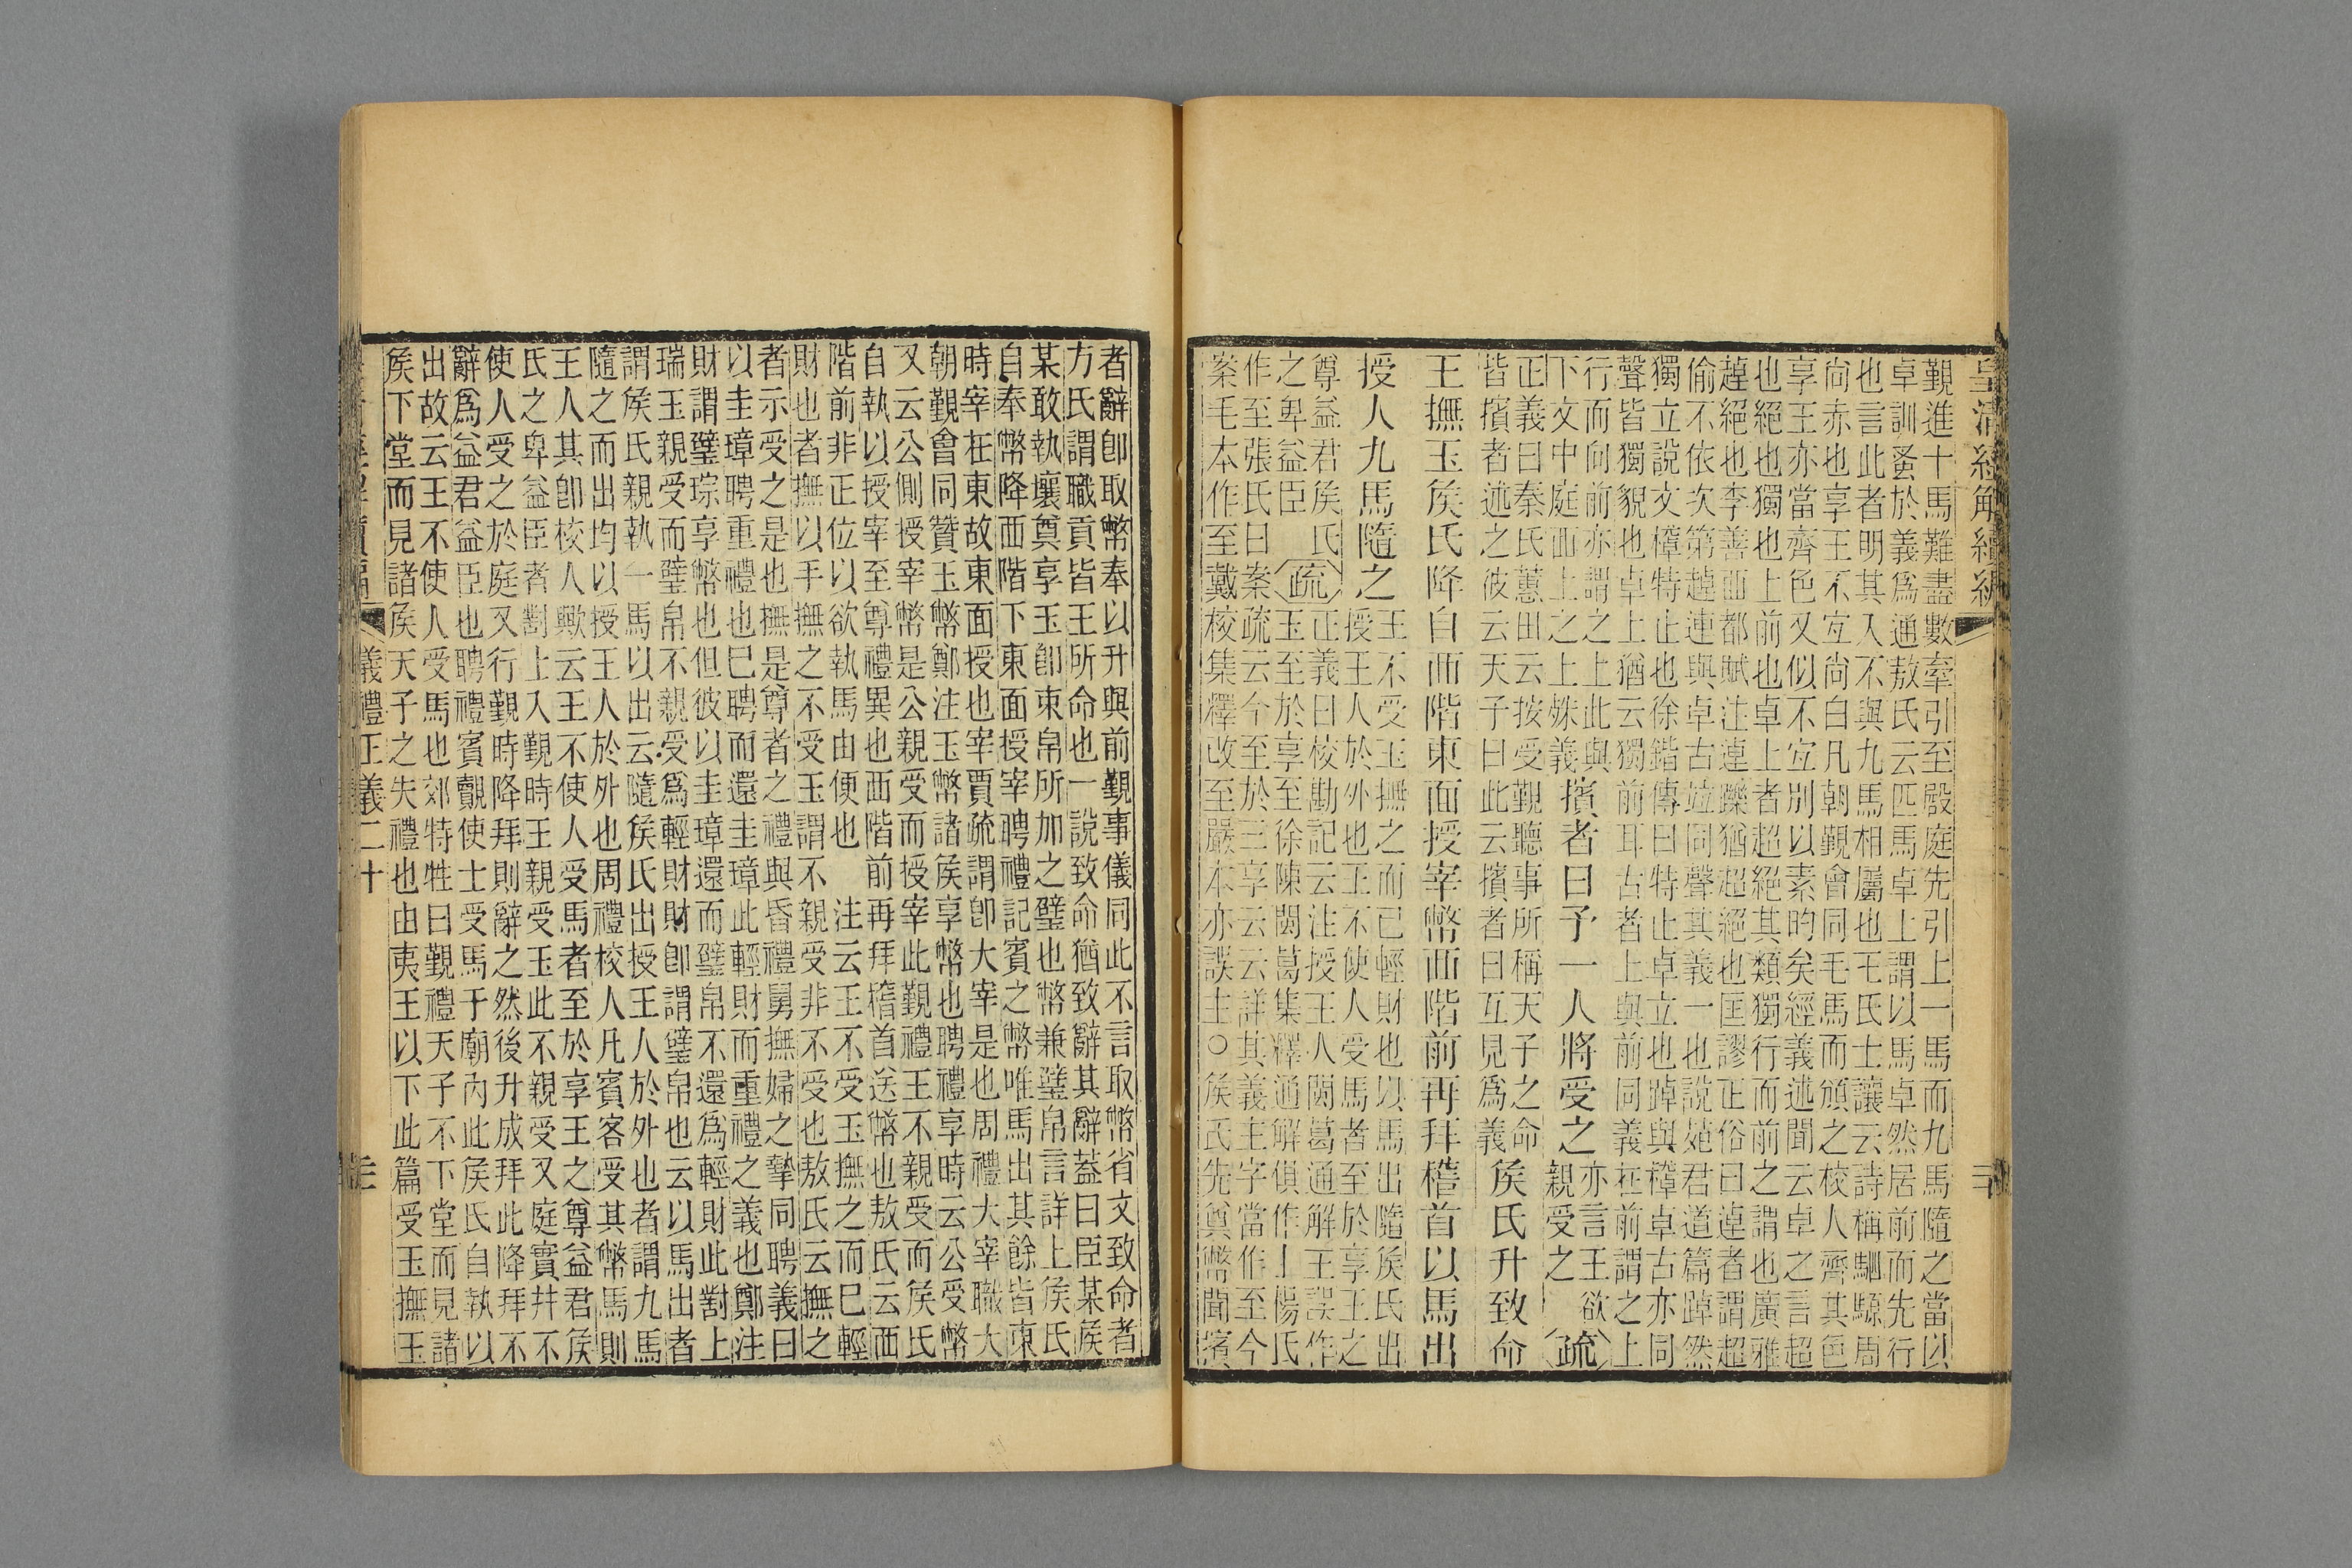 皇清經解續編
覲進十馬難盡數牽引至殿庭先引上一馬而九馬隨之當以
卓訓蚤於義爲通敖氏云匹馬卓上謂以馬卓然居前而先行
也言此者明其入不與九馬相屬也王氏士讓云詩稱駟騵周
尙赤也享王不宜尙白凡朝覲會同毛馬而頒之校人齊其色
享王亦當齊色又似不宜別以素旳矣經義述聞云卓之言超
也絕也獨也上前也卓上者超絕其類獨行而前之謂也廣雅
趠絕也李善西都賦注逴躒猶超絕也匡謬正俗曰逴者謂超
偷不依次第趠連與卓古竝同聲其義一也說苑君道篇踔然
獨立說文樟特止也徐鍇傳曰特止卓立也踔與樟卓古亦同
聲皆獨貌也卓上猶云獨前耳古者上與前同義在前謂之上
行而向前亦謂之上此與
下文中庭西上之上殊義
擯者曰予一人將受之
亦言王欲
親受之
疏
正義曰秦氏蕙田云按受覲聽事所稱天子之命
皆擯者述之彼云天子曰此云擯者曰互見爲義
矦氏升致命
王撫玉矦氏降自西階東面授宰幣西階前再拜稽首以馬出
授人九馬隨之
王不受玉撫之而已輕財也以馬出隨矦氏出
授王人於外也王不使人受馬者至於享王之
尊益君矦氏
之卑益臣
疏
正義曰校勘記云注授王人閩葛通解王誤作
玉至於享至徐陳閩葛集釋通解俱作上楊氏
作至張氏曰案疏云今至於三享云云詳其義主字當作至今
案毛本作至戴校集釋改至嚴本亦誤主○矦氏先奠幣聞擯
者辭卽取幣奉以升與前覲事儀同此不言取幣省文致命者
方氏謂職貢皆王所命也一說致命猶致辭其辭蓋曰臣某矦
某敢執壤奠享玉卽束帛所加之璧也幣兼璧帛言詳上矦氏
自奉幣降西階下東面授宰聘禮記賓之幣唯馬出其餘皆東
時宰在東故東面授也宰賈疏謂卽大宰是也周禮大宰職大
朝覲會同贊玉幣鄭注玉幣諸矦享幣也聘禮享時云公受幣
又云公側授宰幣是公親受而授宰此覲禮王不親受而矦氏
自執以授宰至尊禮異也西階前再拜稽首送幣也敖氏云西
階前非正位以欲執馬由便也　注云王不受玉撫之而已輕
財也者撫以手撫之不受玉謂不親受非不受也敖氏云撫之
者示受之是也撫是尊者之禮與昏禮舅撫婦之摯同聘義曰
以圭璋聘重禮也巳聘而還圭璋此輕財而重禮之義也鄭注
財謂璧琮享幣也但彼以圭璋還而璧帛不還爲輕財此對上
瑞玉親受而璧帛不親受爲輕財卽謂璧帛也云以馬出者
謂矦氏親執一馬以出云隨矦氏出授王人於外也者謂九馬
隨之而出均以授王人於外也周禮校人凡賓客受其幣馬則
王人其卽校人歟云王不使人受馬者至於享王之尊益君矦
氏之卑益臣者對上入覲時王親受玉此不親受又庭實幷不
使人受之於庭又行覲時降拜則辭之然後升成拜此降拜不
辭爲益君益臣也聘禮賓覿使士受馬于廟內此矦氏自執以
出故云王不使人受馬也郊特牲曰覲禮天子不下堂而見諸
矦下堂而見諸矦天子之失禮也由夷王以下此篇受玉撫玉
儀禮正義二十